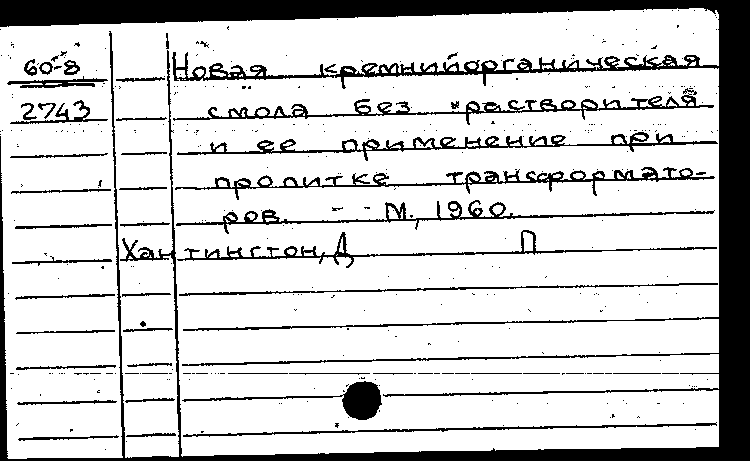 60-8
2743
Новая кремнийорганическая
смола без растворителя
и ее применение при
пропитке трансформато-
ров. - - М., 1960.
Хантингтон, Д П